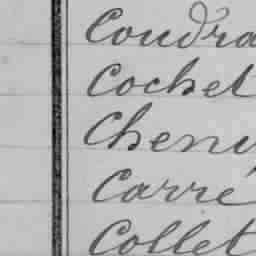 Coudra
Cochet
Chenu
Carré
Collet